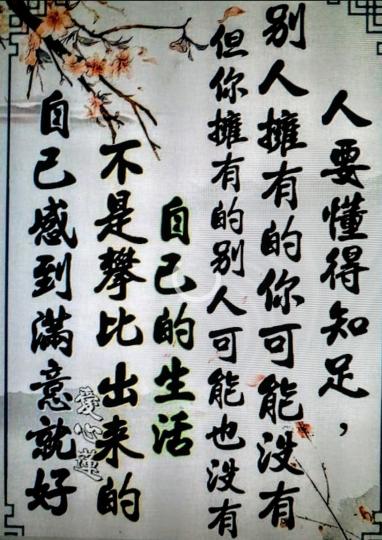 人要懂得知足，
别人擁有的你可能没有
但你擁有的别人可能也没有
自己的生活
不是攀比出来的
自己感到滿意就好
愛心蓮